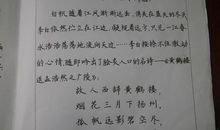 白帆随着江风渐渐远去，消失在蓝天的尽头
李白依然伫立在江边，凝视着远方，只见一江春
水浩浩荡荡地流向天边……李白按捺不住激动
的心情，随即吟出了脍炙人口的名诗——《黄鹤楼
送孟浩然之广陵》：
故人西辞黄鹤楼，
烟花三月下扬州。
孤帆远影碧空尽，